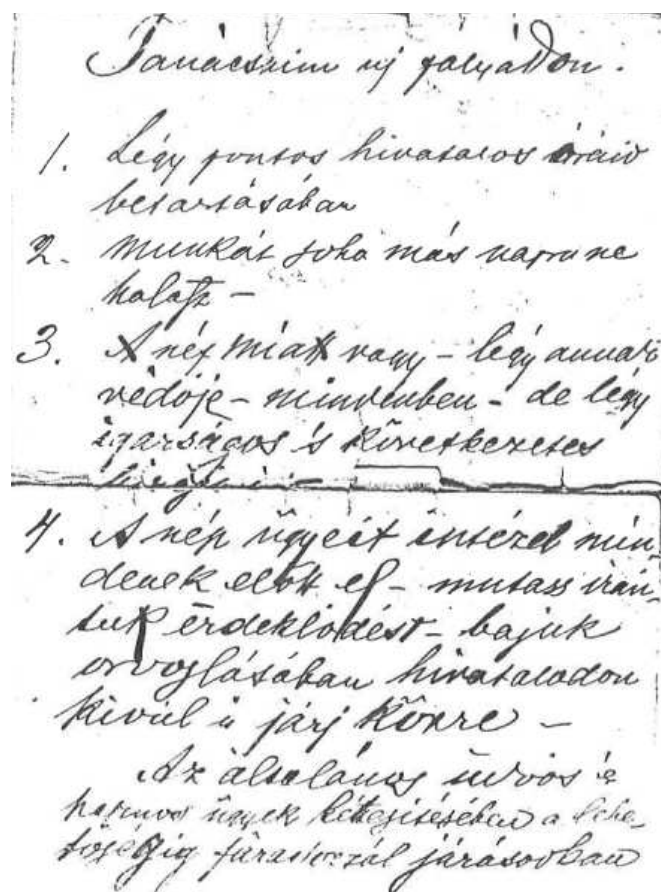 Tanácsaim új pályádon.
1. Légy pontos hivatalos óráid
betartásában
2. Munkát soha más napra ne
halasz -
3. A nép miatt vagy - légy annak
védője - mindenben - de légy
igazságos is következetes
4. A nép ügyeit intézd min-
denek előtt el - mutass irán-
tuk érdeklődést - bajuk
orvoslásában hivatalodon
kívül is járj közre -
Az általános üdvös és
hasznos ügyek létesitésében a lehe-
tőségig fáradozzál járásodban